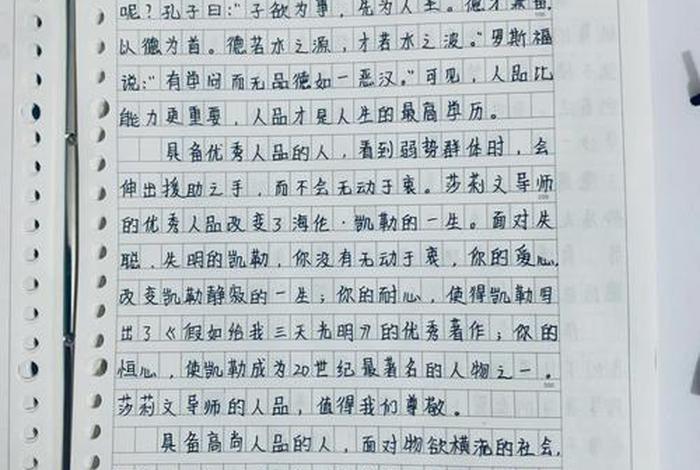 呢？孔子曰：“子欲为事，先为人圣。德才兼备，
以德为首。德若水之源，才若水之波。”罗斯福
说：“有学问而无品德如一恶汉。”可见，人品比
能力更重要，人品才是人生的最高学历。
具备优秀人品的人，看到弱势群体时，会
伸出援助之手，而不会无动于衷。莎莉文导师
的优秀人品改变了海伦·凯勒的一生。面对失
聪、失明的凯勒，你没有无动于衷，你的爱心，
改变凯勒静寂的一生；你的耐心，使得凯勒写
出了《假如给我三天光明》的优秀著作；你的
恒心，使凯勒成为20世纪最著名的人物之一。
莎莉文导师的人品，值得我们尊敬。
具备高尚人品的人，面对物欲横流的社会，